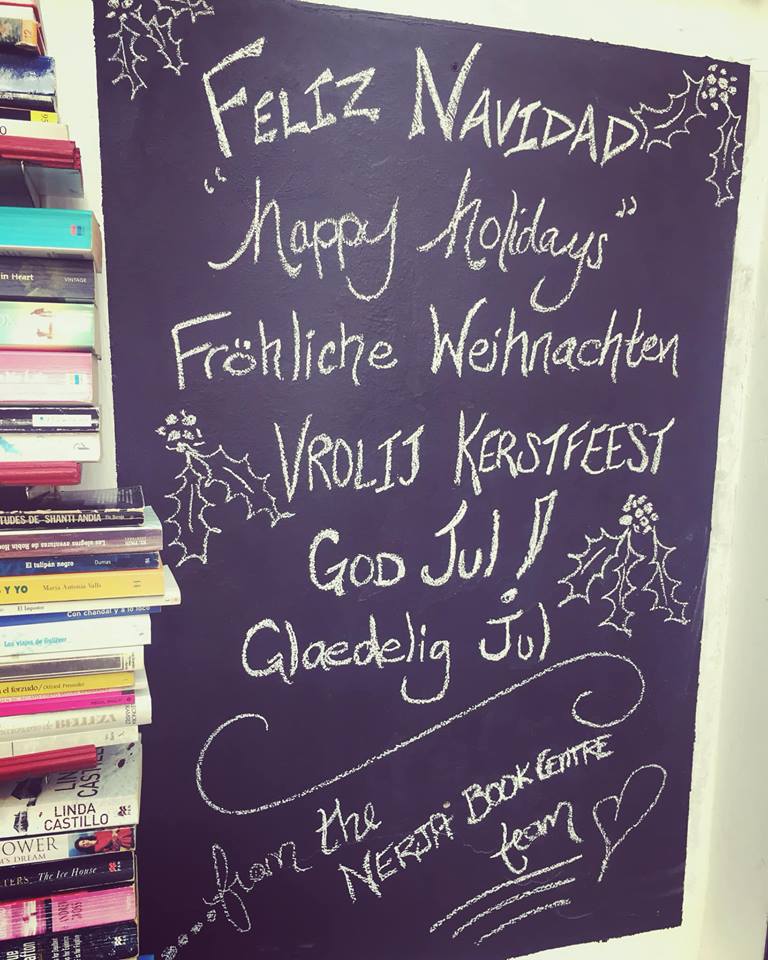 FELIZ NAVIDAD
"happy holidays"
Fröhliche Weihnachten
VROLIJ KERSTFEEST
GOD JUL!
Glaedelig Jul
....from the
NERJA BOOK CENTRE
team
in Heart
VINTAGE
TUDES DE SHANTI ANDIA
Las alegres aventuras de Robin Ho
El tulipán negro Dumas
S Y YO María Antonia Valls
El Impostor
Con chandal y a lo loco
Los viajes de Gulliver
n el forzudo/
LINDA
CASTILLO
LINDA
CASTILLO
OWER
M'S DREAM
TERS The Ice House